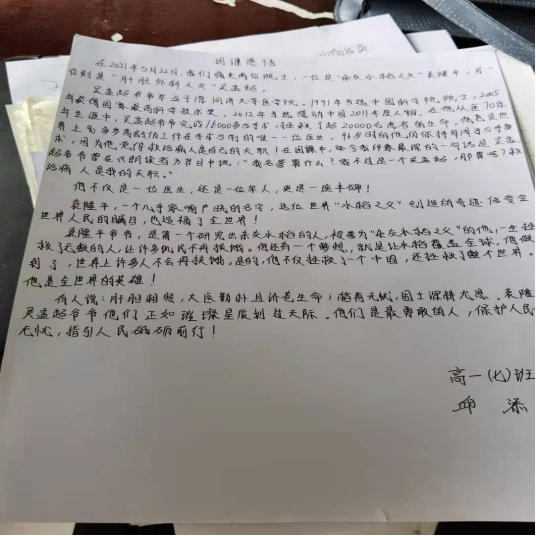 团课感悟
在2021年5月22日,我们痛失两位院士,一位是“杂交水稻之父”袁隆平,另一
位则是“肝胆外科之父”吴孟超。
吴孟超爷爷毕业于原同济大学医学院。1991年当选中国科学院院士,2005
年获得国家最高科学技术奖,2012年当选感动中国2011年度人物。在他从医70余
年生涯中,吴孟超爷爷完成16000多台手术,拯救了超20000名患者的生命。他是世
界上90多岁高龄仍工作在手术台前的唯一一位医生,
术,因为他觉得救治病人是自己的天职!在团课中,
爷爷曾在《朗读者》节目中说:“我名誉算什么?我不过是一个吴孟超,那算啥?救
治病人是我的天职。”
他不仅是一位医生,还是一位军人,更是一座丰碑!
袁隆平,一个几乎家喻户晓的名字,这位世界“水稻之父”创造的奇迹倍受全
世界人民的瞩目,也造福了全世界!
袁隆平爷爷,是第一个研究出杂交水稻的人,被誉为“杂交水稻之父”的他,一生拯
救了无数的人,让许多饥民不再挨饿。他还有一个梦想,就是让水稻覆盖全球,他做
到了,世界上许多人不会再挨饿。是的,他不仅拯救了一个中国,还拯救了整个世界。
他是全世界的英雄!
有人说:肝胆相照,大医勤朴且济苍生;稻香无忧,国士深耕尤思。袁隆
吴孟超爷爷他们正如璀璨星辰划过天际。他们是最勇敢的人,保护人民
无忧,指引人民砥砺前行!
高一(七)班
邱添